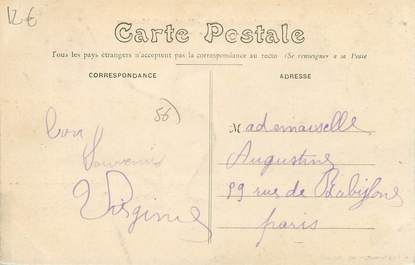 12€
Carte Postale
Tous les pays étrangers n'acceptent pas la correspondance au recto (Se renseigner à la Poste
CORRESPONDANCE
ADRESSE
56)
Bon
Souvenir
Virginie
Mademaiselle
Augustine
99 rue de Babylone
paris